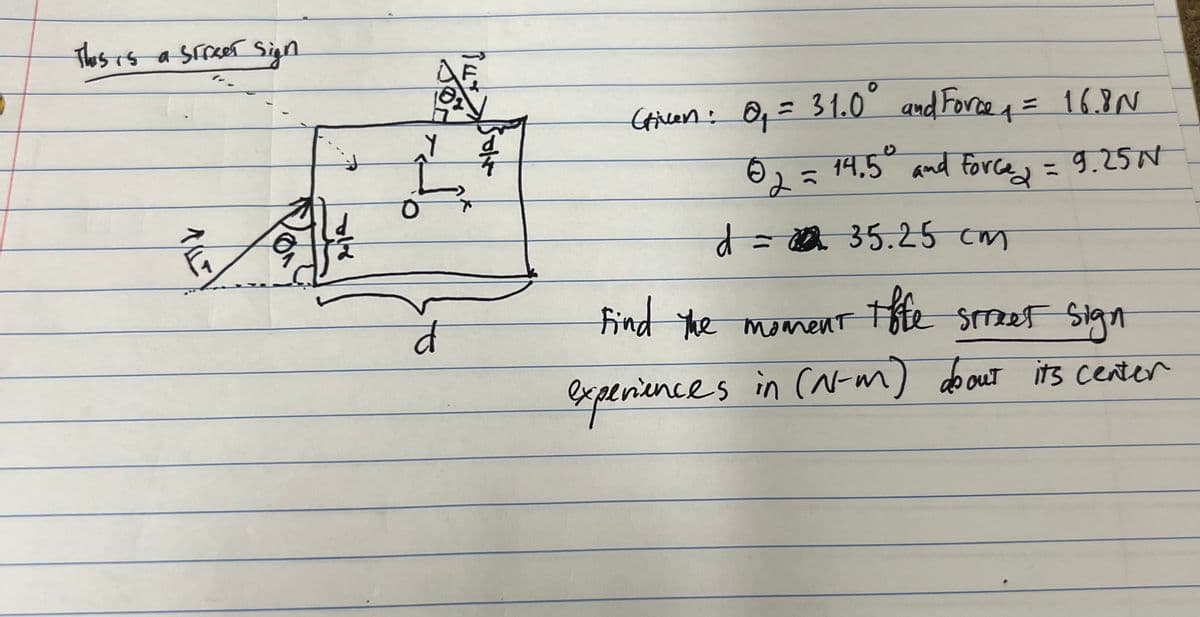 This is a street sign
F₂
θ₂
Y
d/4
O
x
F₁
θ₁
d/2
d
Given: θ₁ = 31.0° and Force 1 = 16.8N
θ₂ = 14.5° and Force₂ = 9.25N
d = 35.25 cm
Find the moment the street sign
experiences in (N-m) about its center